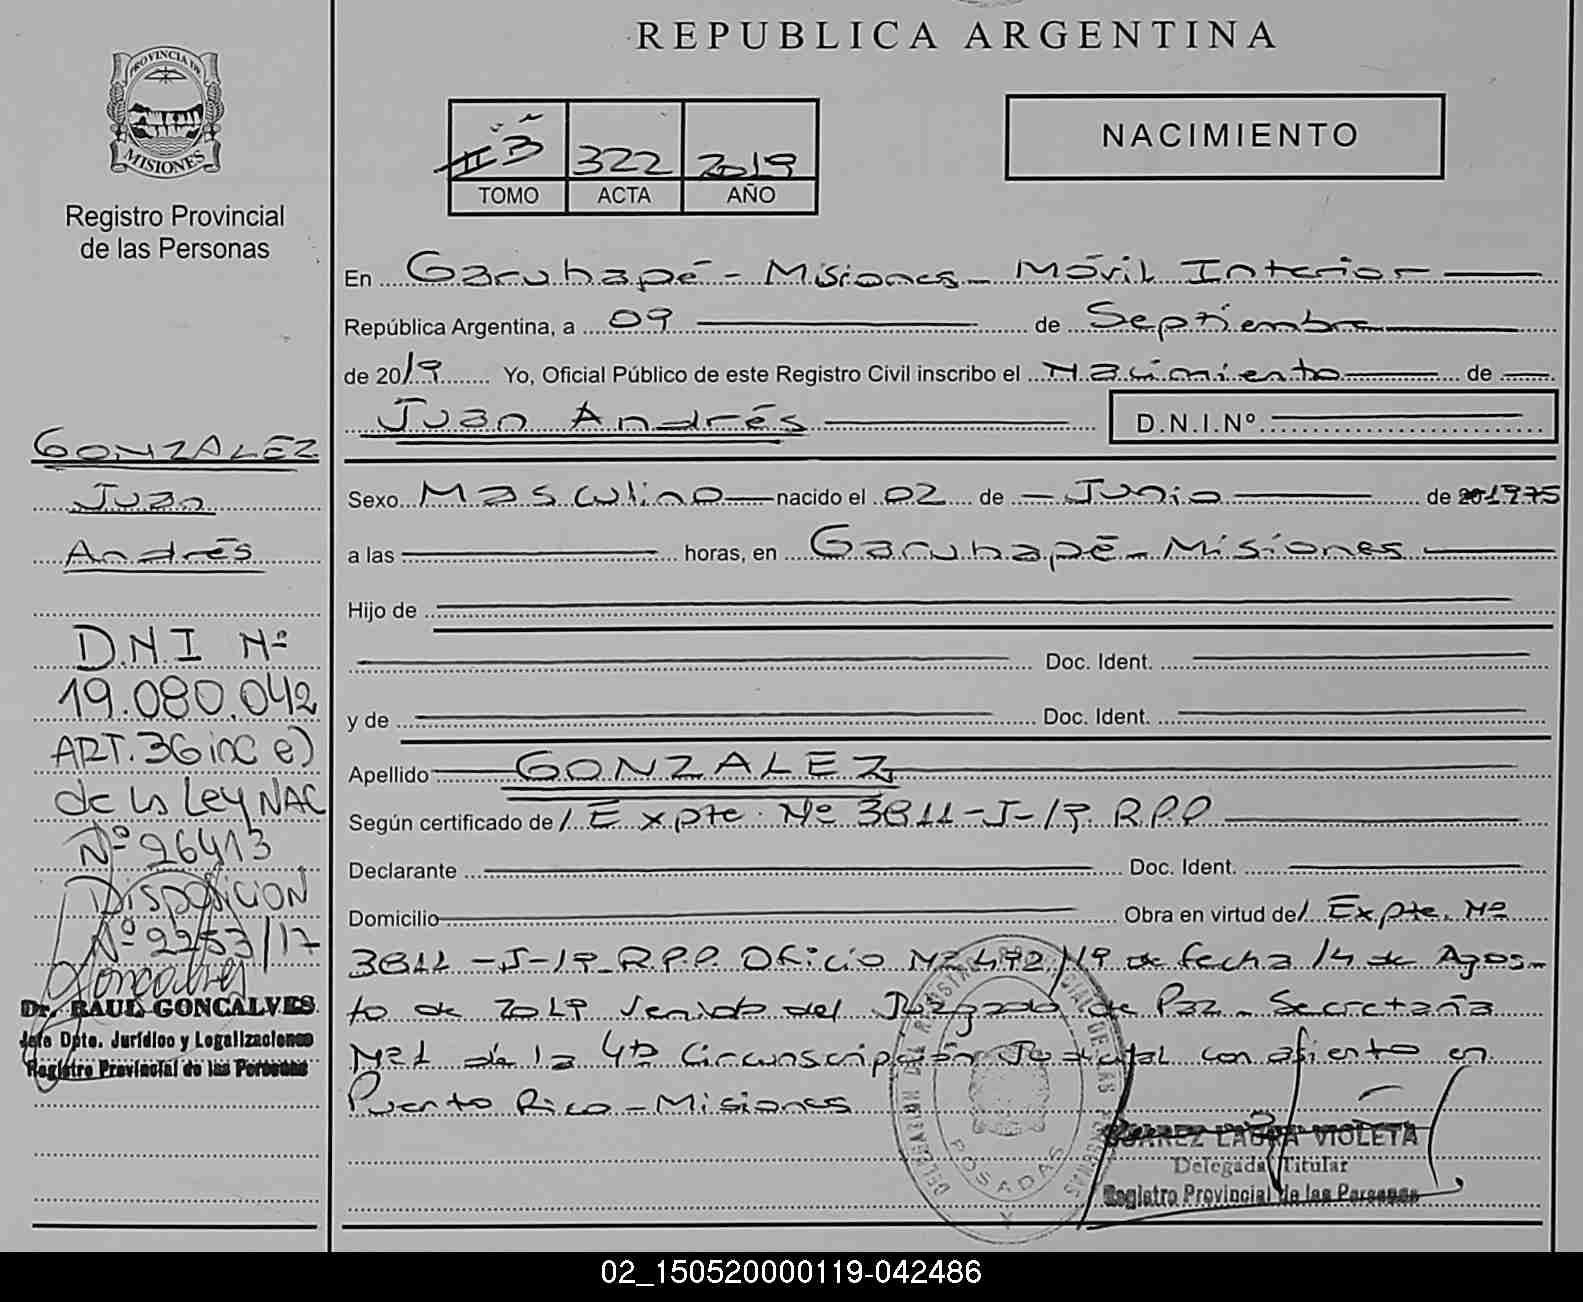 REPUBLICA ARGENTINA
PROVINCIA DE
MISIONES
Registro Provincial
de las Personas
3 322 2019
TOMO ACTA AÑO
NACIMIENTO
En Garuhapé - Misiones - Móvil Interior
República Argentina, a 09 de Septiembre
de 2019 Yo, Oficial Público de este Registro Civil inscribo el Nacimiento de
Juan Andrés D.N.I.Nº
Sexo Masculino nacido el 02 de Junio de 1975
a las horas, en Garuhapé - Misiones
Hijo de
Doc. Ident.
y de Doc. Ident.
Apellido GONZALEZ
Según certificado de / Expte. Nº 3811-J-19 R.P.P
Declarante Doc. Ident.
Domicilio Obra en virtud de / Expte. Nº
3811-J-19-R.P.P. Oficio Nº 492/19 de fecha 14 de Agos-
to de 2019 venido del Juzgado de Paz - Secretaría
Nº1 de la 4ta Circunscripción Judicial con asiento en
Puerto Rico - Misiones
GONZALEZ
Juan
Andrés
D.N.I Nº
19.080.042
ART. 36 inc e)
de la Ley NAC
Nº 26413
Disposicion
Nº 2253/17
Goncalves
Dr. RAUL GONCALVES
Jefe Dpto. Jurídico y Legalizaciones
Registro Provincial de las Personas
POSADAS
SUAREZ LAURA VIOLETA
Delegada Titular
Registro Provincial de las Personas
02_150520000119-042486